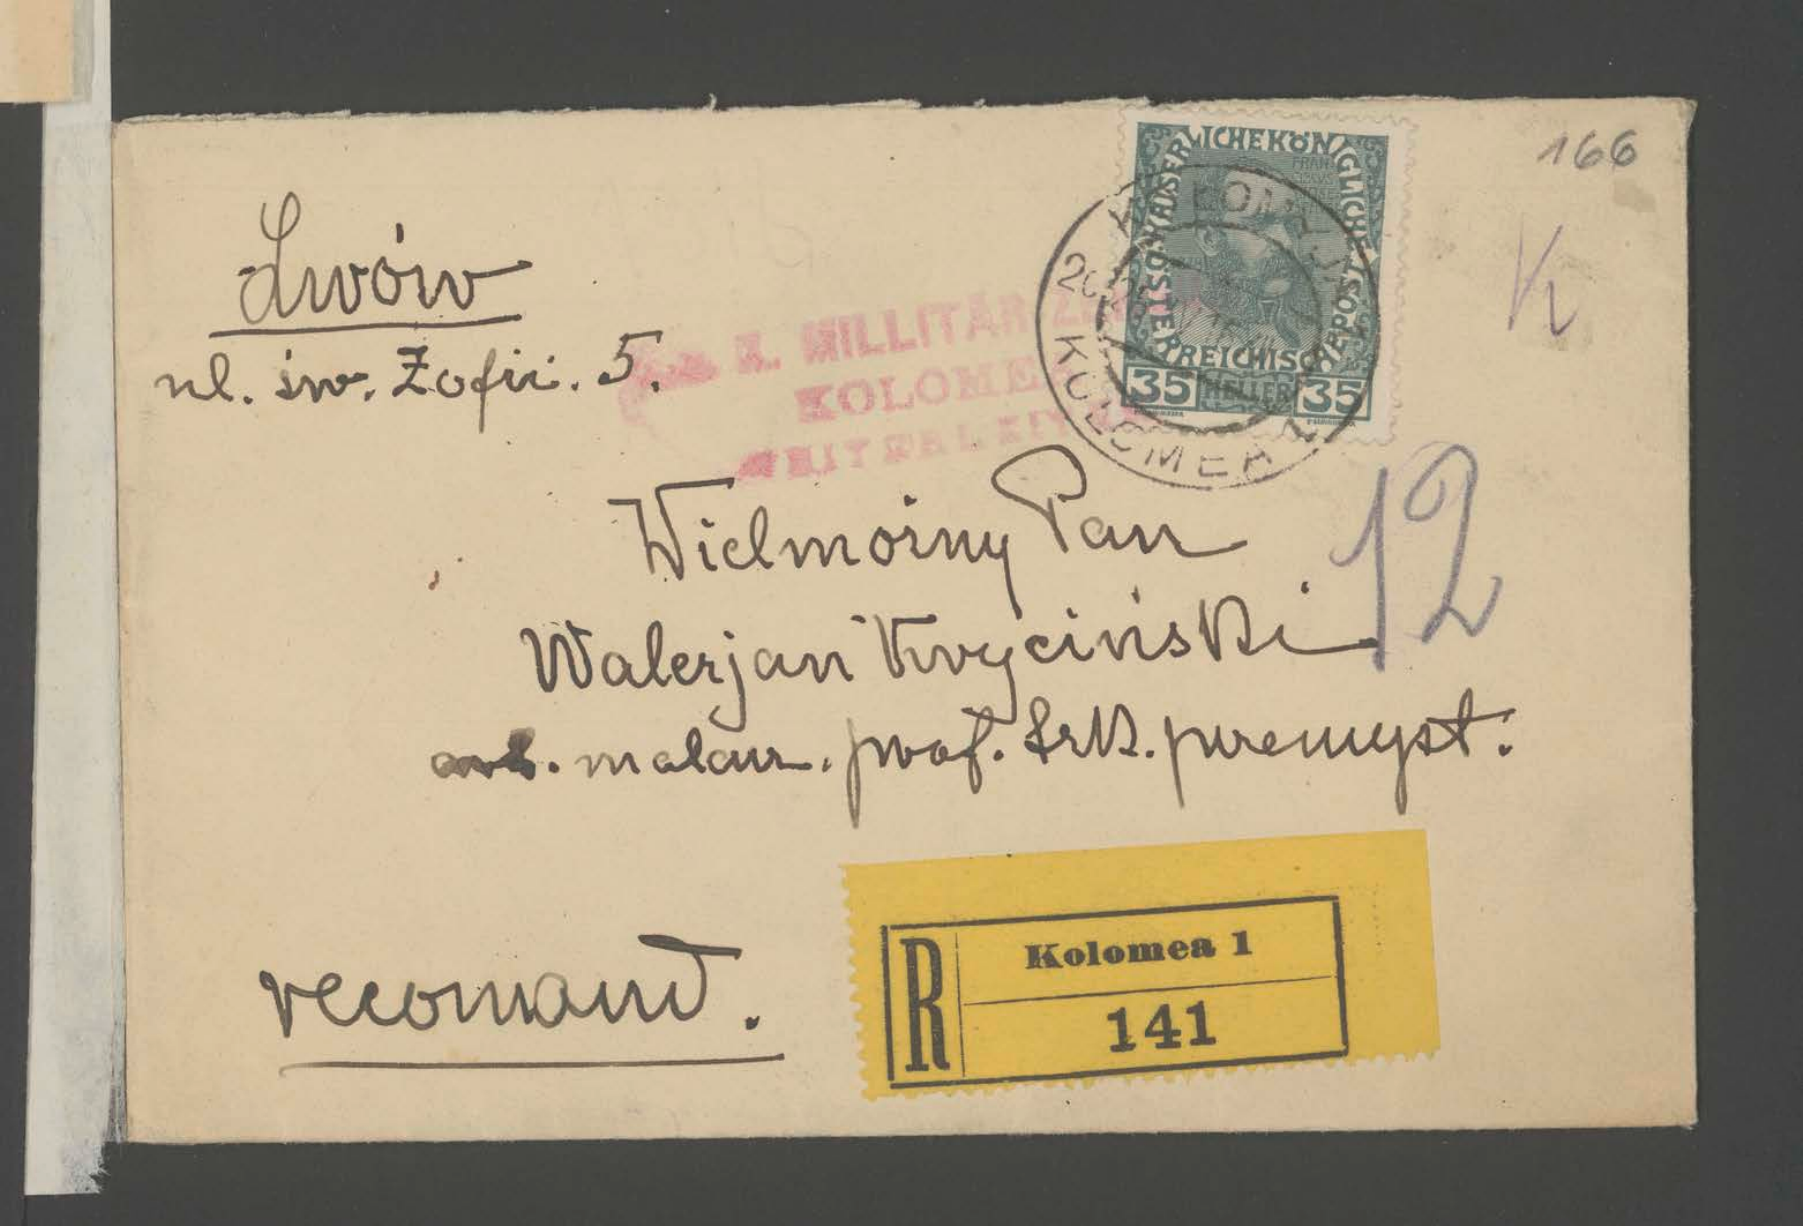 166
K
Lwów
ul. św. Zofii. 5.
K. MILLITÄR ZENSUR
KOLOMEA
KAISERLICHE KÖNIGLICHE ÖSTERREICHISCHE POST
FRANZ
35 HELLER 35
KOŁOMYJA
KOLOMEA
12
Wielmożny Pan
Walerjan Kryciński
art. malarz. prof. szk. przemysł.
recomand.
R
Kolomea 1
141